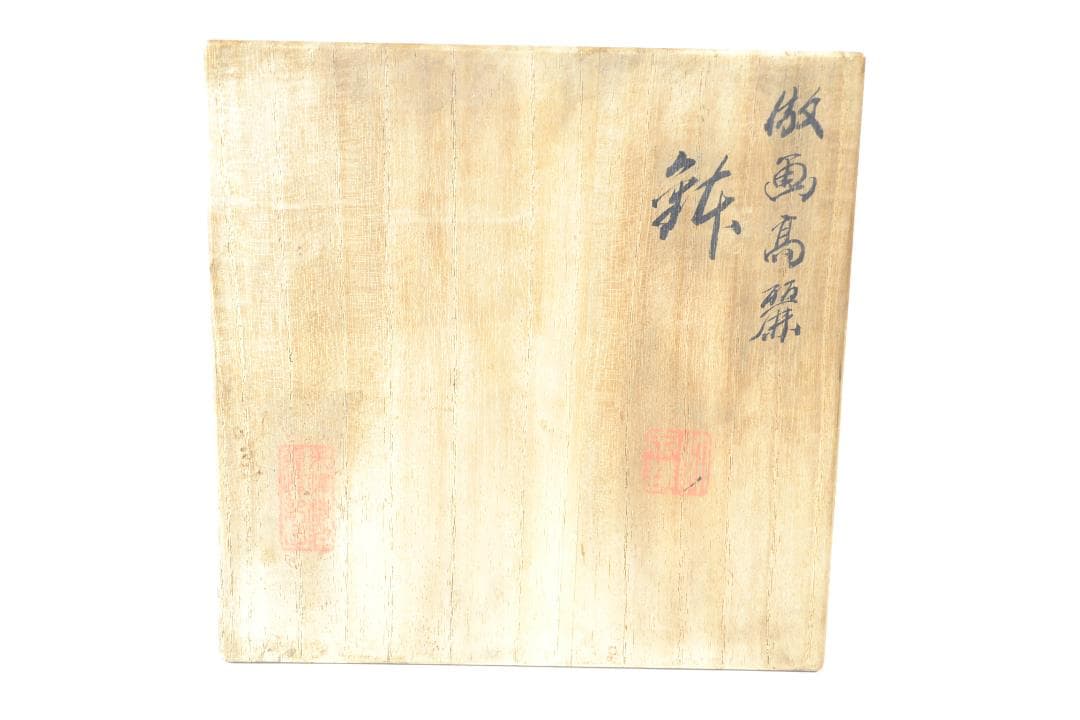 倣画高麗
鉢